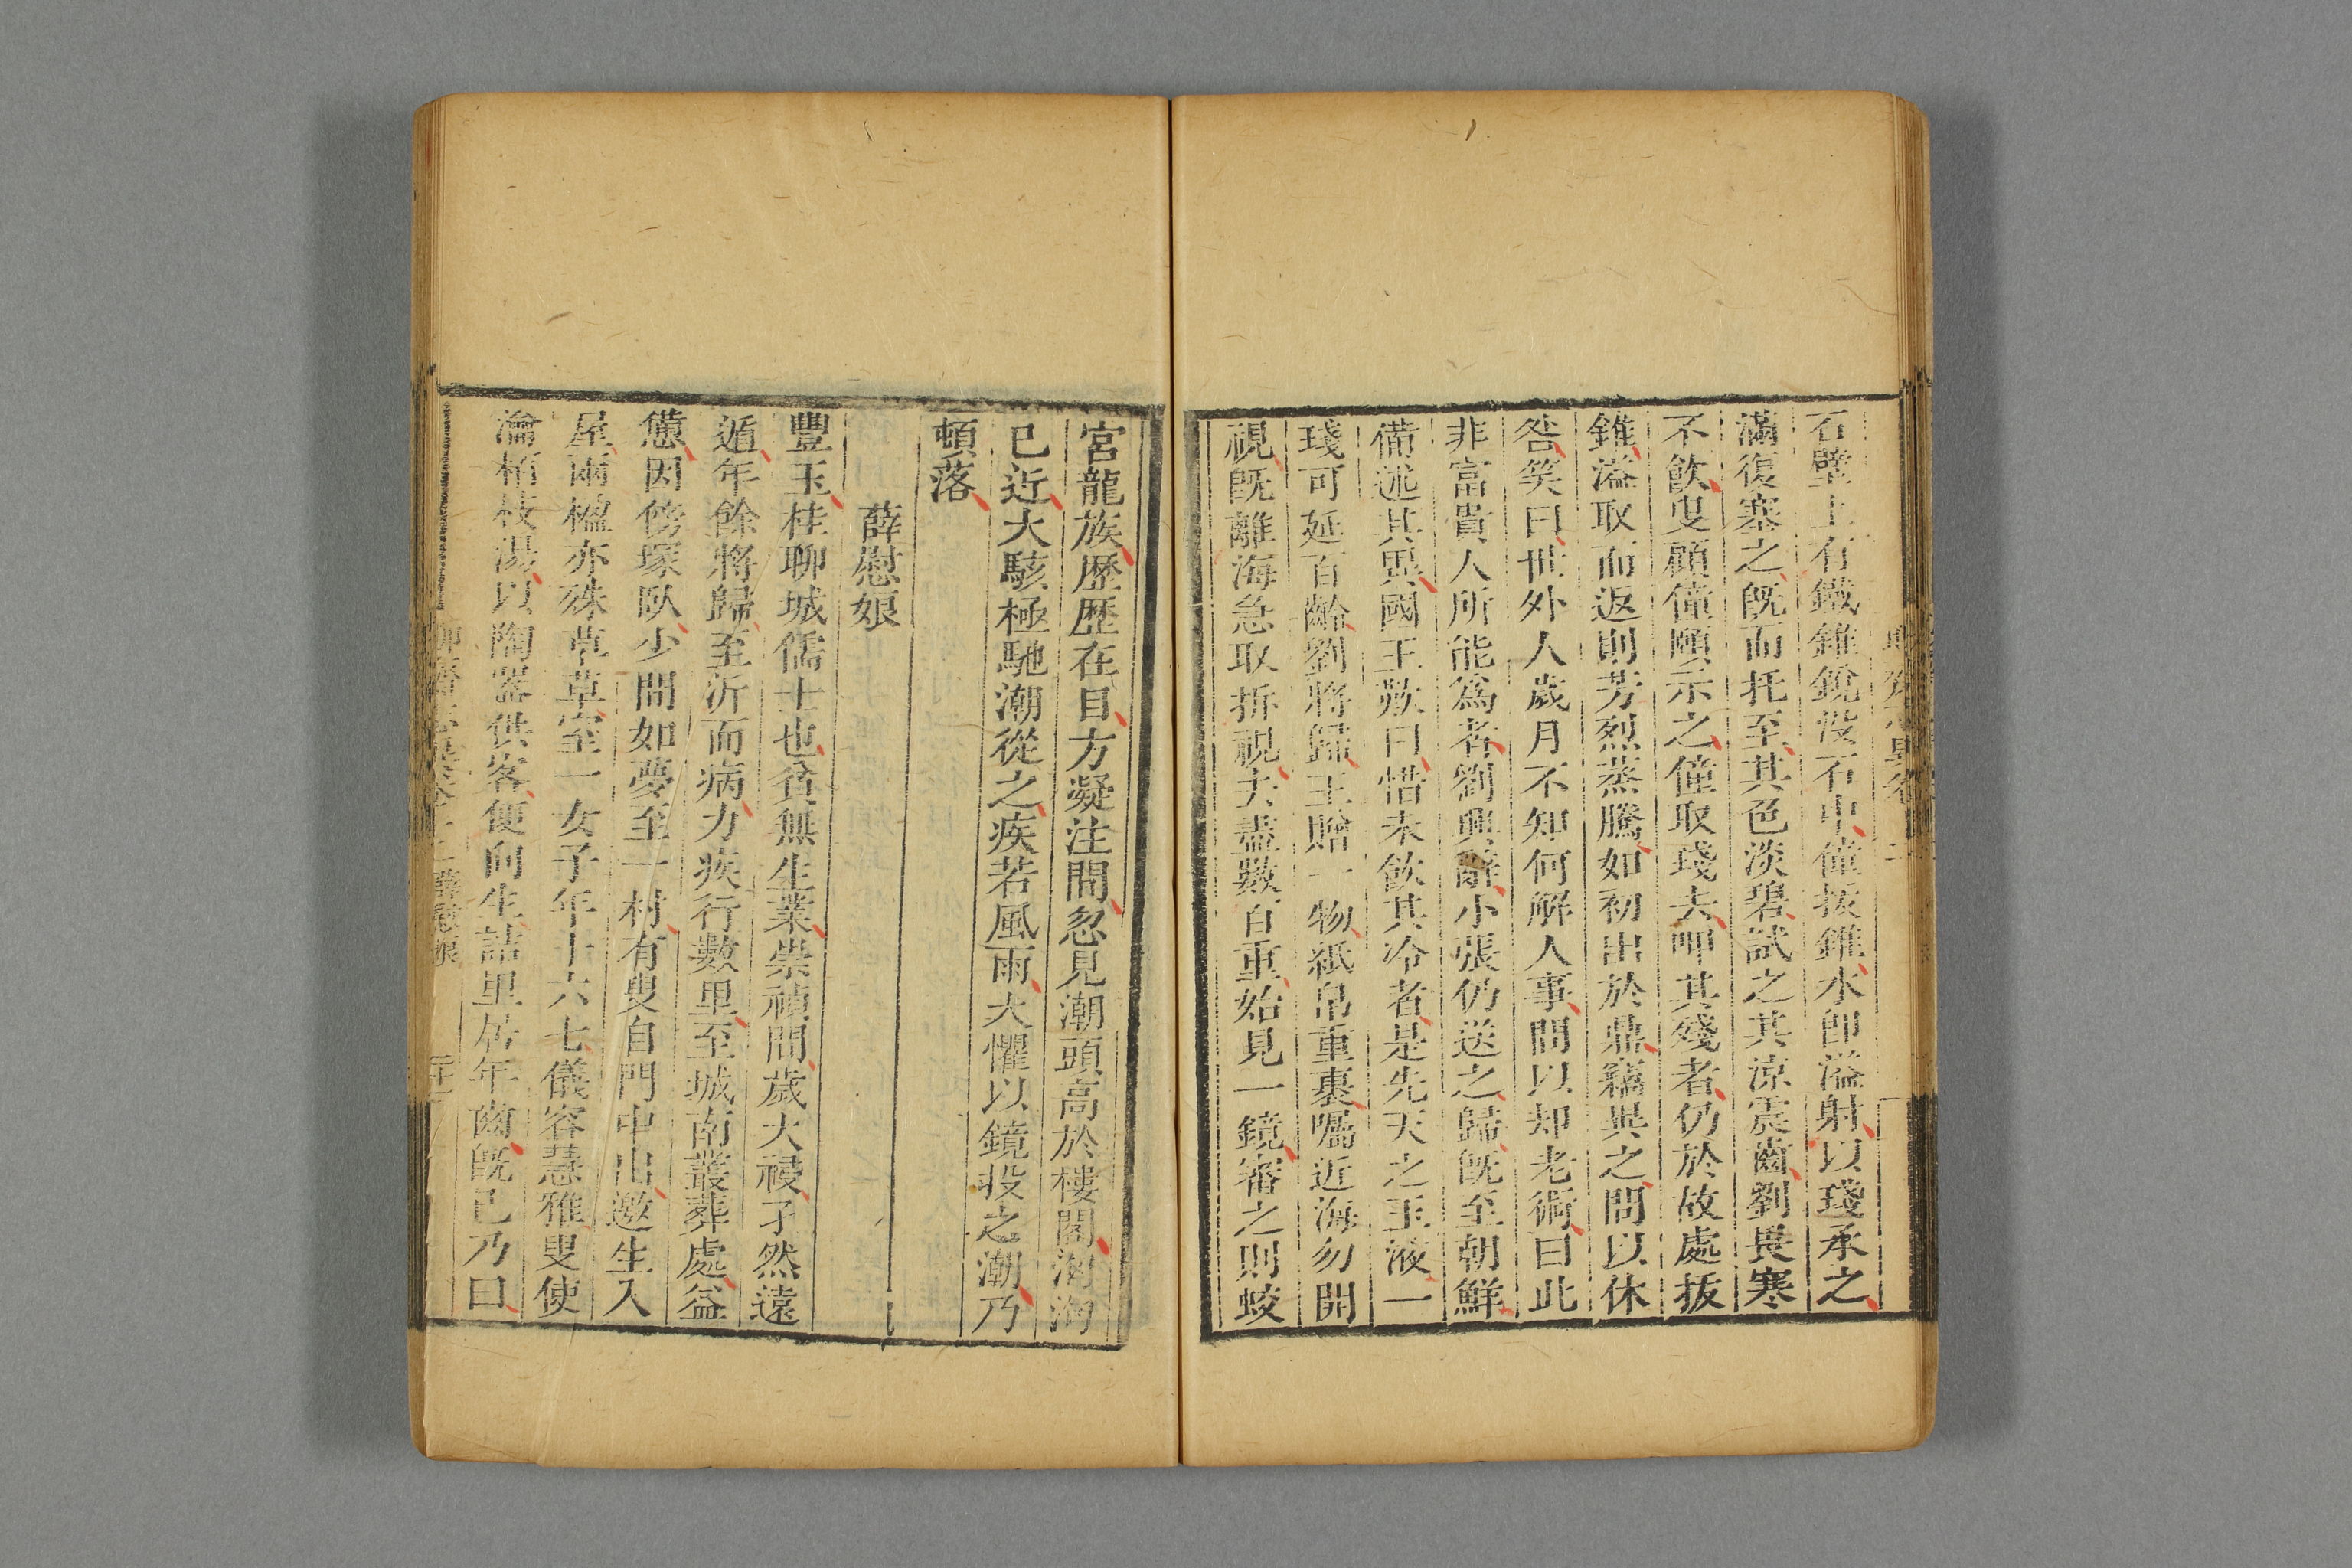 石壁上有鐵錐銳沒石中僮拔錐水即溢射以琖承之
滿復塞之旣而托至其色淡碧試之其凉震齒劉畏寒
不飲叟顧僮頤示之僮取琖去呷其殘者仍於故處拔
錐溢取而返則芳烈蒸騰如初出於鼎竊異之問以休
咎笑曰世外人歲月不知何解人事問以却老術曰此
非富貴人所能爲者劉興辭小張仍送之歸旣至朝鮮
備述其異國王歎曰惜未飲其冷者是先天之玉液一
琖可延百齡劉將歸王贈一物紙帛重裹囑近海勿開
視旣離海急取拆視去盡數百重始見一鏡審之則蛟
宮龍族歴歴在目方凝注間忽見潮頭高於樓閣洶洶
已近大駭極馳潮從之疾若風雨大懼以鏡投之潮乃
頓落
薛慰娘
豐玉桂聊城儒士也貧無生業崇禎間歲大祲孑然遠
遁年餘將歸至沂而病力疾行數里至城南叢葬處益
憊因傍塚臥少間如夢至一村有叟自門中出邀生入
屋兩楹亦殊草草室一女子年十六七儀容慧雅叟使
瀹柏枝湯以陶器供客便向生詰里居年齒旣已乃曰